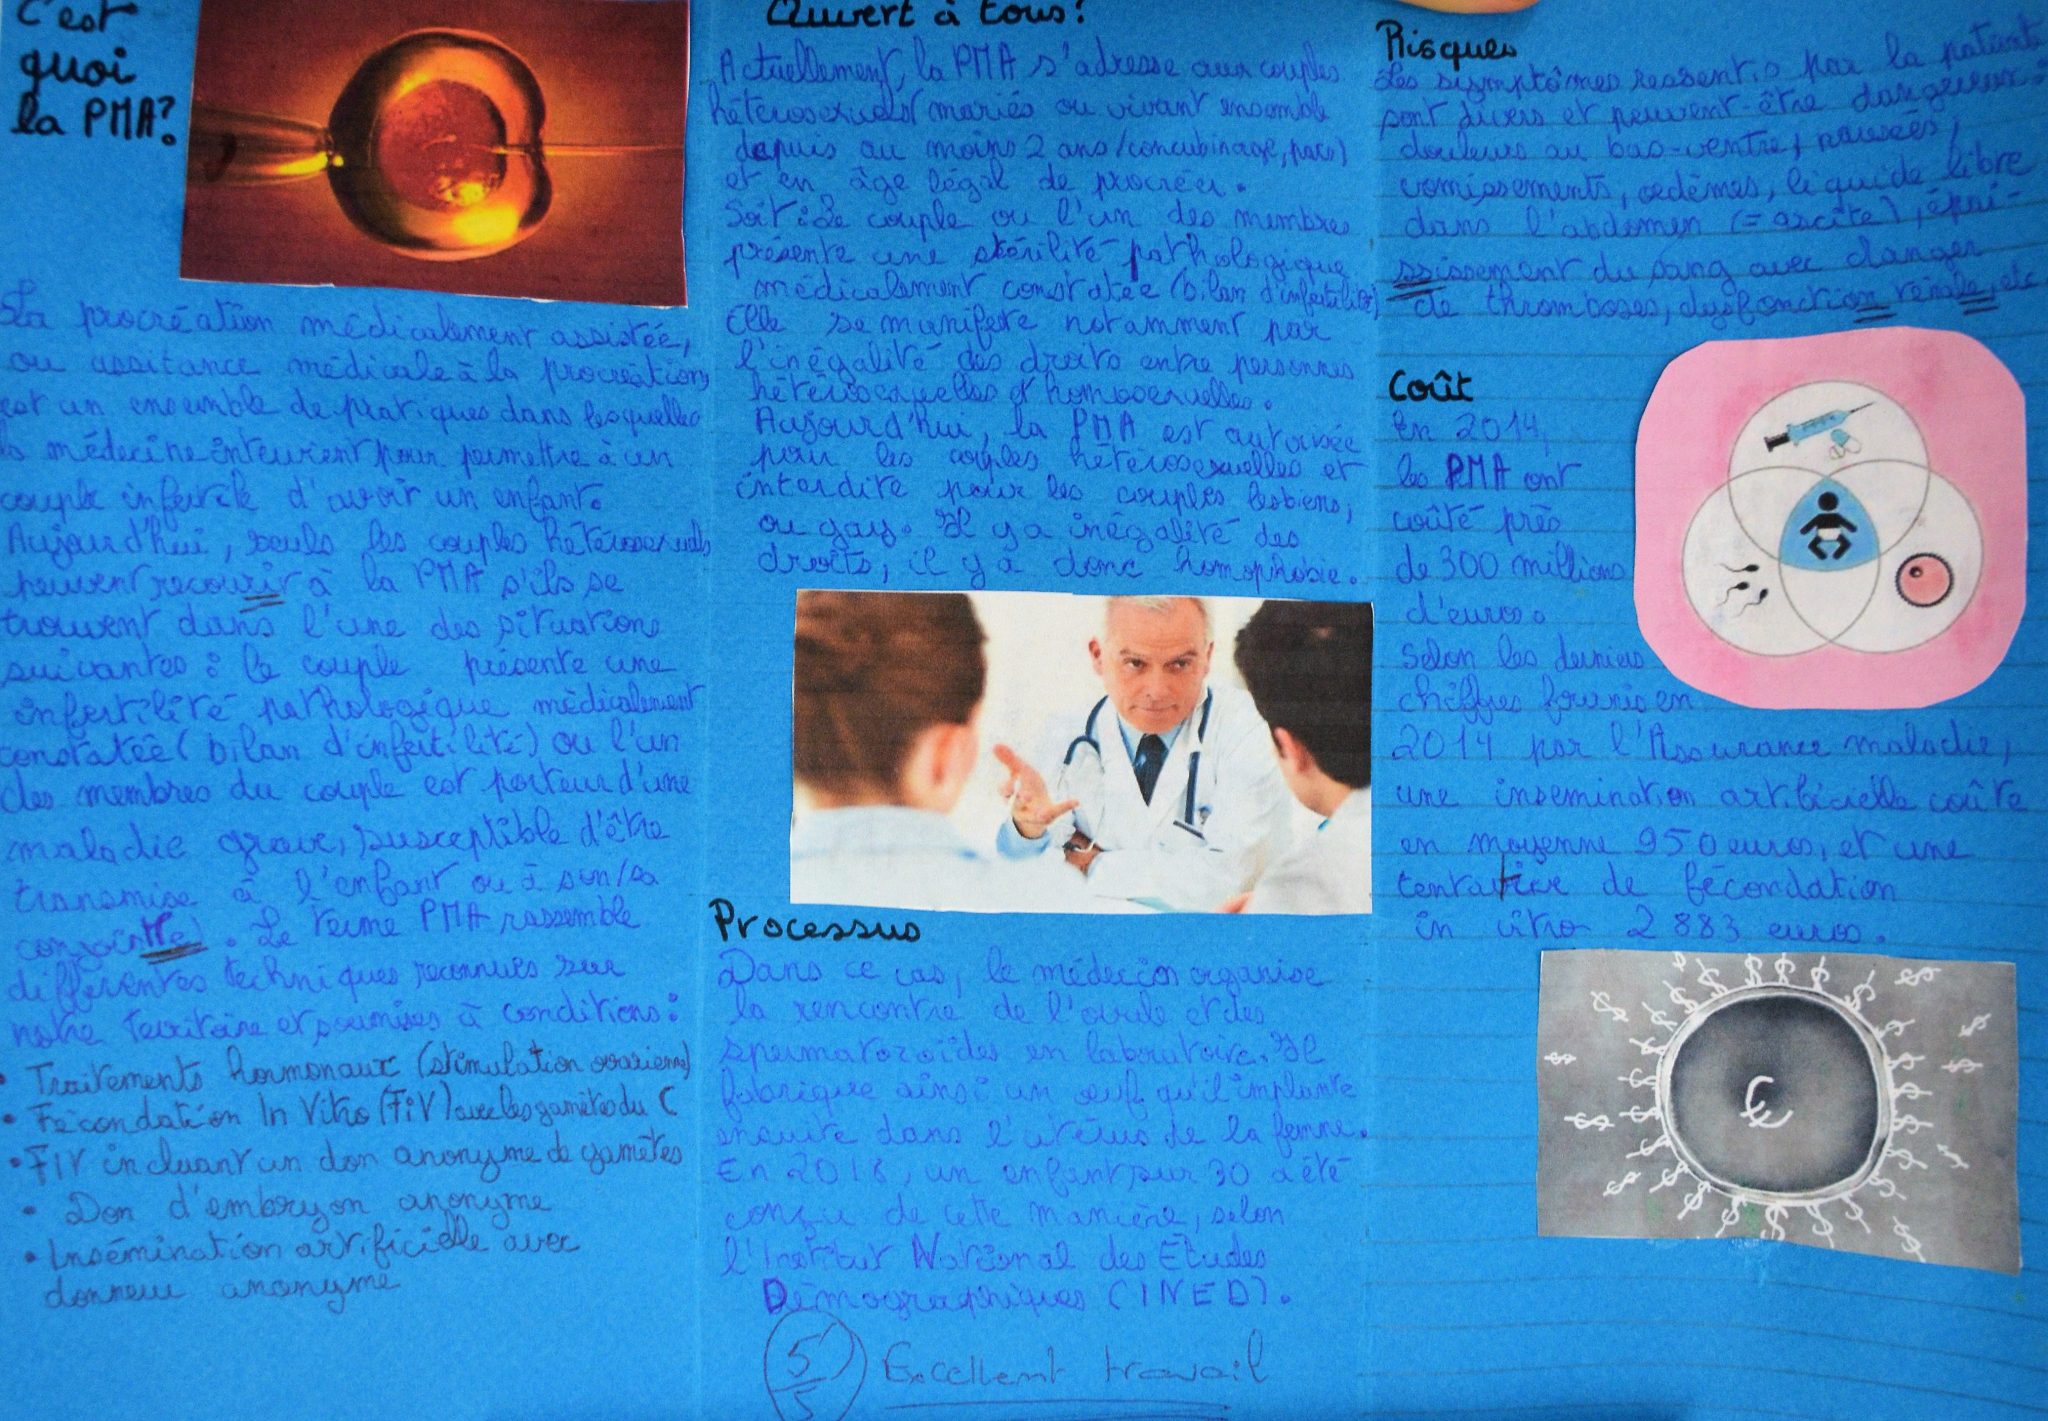 C'est
quoi
la PMA?
La procréation médicalement assistée,
ou assitance médicale à la procréation,
est un ensemble de pratiques dans lesquelles
la médecine intervient pour permettre à un
couple infertile d'avoir un enfant.
Aujourd'hui, seuls les couples hétérosexuels
peuvent recourir à la PMA s'ils se
trouvent dans l'une des situations
suivantes : le couple présente une
infertilité pathologique médicalement
constatée (bilan d'infertilité) ou l'un
des membres du couple est porteur d'une
maladie grave, susceptible d'être
transmise à l'enfant ou à son/sa
conjoint(e). Le terme PMA rassemble
différentes techniques reconnues sur
notre territoire et soumises à conditions :
• Traitements hormonaux (stimulation ovarienne)
• Fécondation In Vitro (FiV) avec les gamètes du C
• FIV incluant un don anonyme de gamètes
• Don d'embryon anonyme
• Insémination artificielle avec
donneur anonyme
Ouvert à tous?
Actuellement, la PMA s'adresse aux couples
hétérosexuels mariés ou vivant ensemble
depuis au moins 2 ans (concubinage, pacs)
et en âge légal de procréer.
Soit : le couple ou l'un des membres
présente une stérilité pathologique
médicalement constatée (bilan d'infertilité)
Elle se manifeste notamment par
l'inégalité des droits entre personnes
hétérosexuelles et homosexuelles.
Aujourd'hui, la PMA est autorisée
pour les couples hétérosexuelles et
interdite pour les couples lesbiens,
ou gay. Il y a inégalité des
droits, il y a donc homophobie.
Processus
Dans ce cas, le médecin organise
la rencontre de l'ovule et des
spermatozoïdes en laboratoire. Il
fabrique ainsi un œuf qu'il implante
ensuite dans l'utérus de la femme.
En 2018, un enfant sur 30 a été
conçu de cette manière, selon
l'Institut National des Etudes
Démographiques (INED).
5/5 Excellent travail
Risques
Les symptômes ressentis par la patiente
sont divers et peuvent-être dangereux :
douleurs au bas-ventre, nausées,
vomissements, œdèmes, liquide libre
dans l'abdomen (= ascite), épai-
ssissement du sang avec danger
de thromboses, dysfonction rénale, etc
Coût
En 2014,
les PMA ont
coûté près
de 300 millions
d'euros.
Selon les derniers
chiffres fournis en
2014 par l'Assurance maladie,
une insémination artificielle coûte
en moyenne 950 euros, et une
tentative de fécondation
in vitro 2 883 euros.